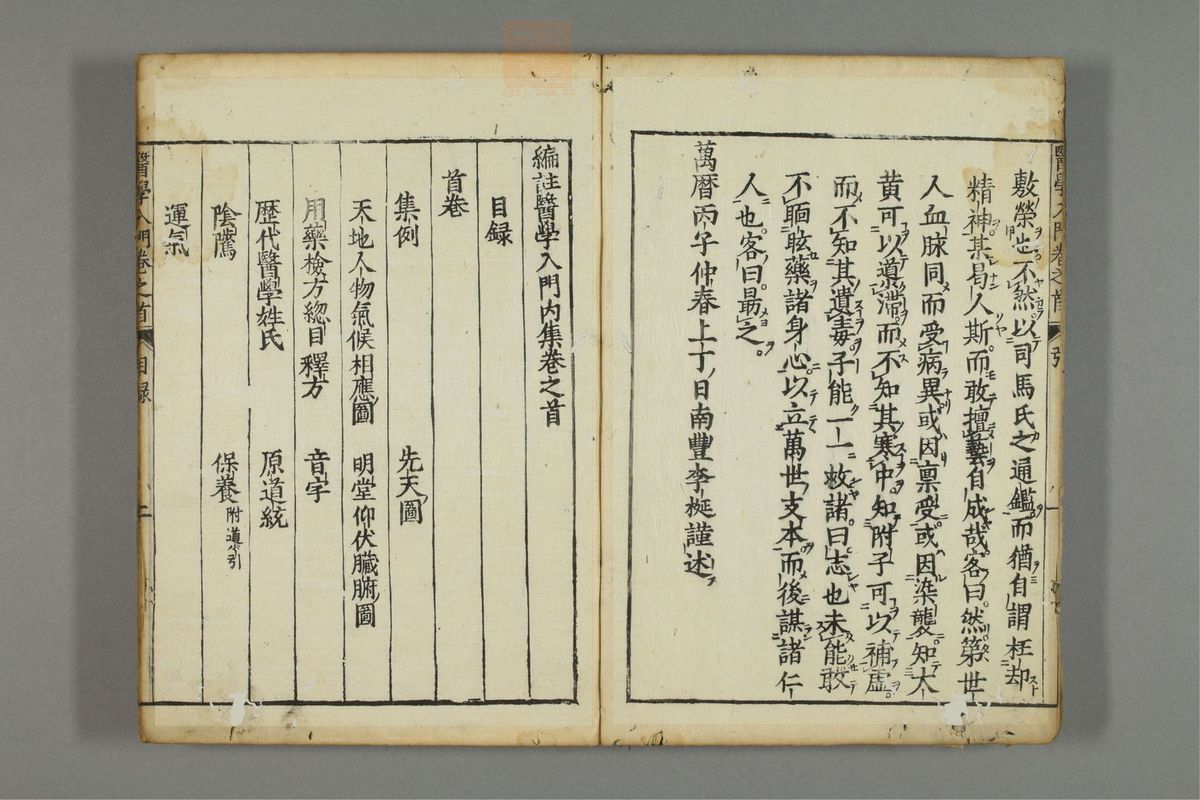 敷榮也不然以司馬氏之通鑑而猶自謂枉却
精神某曷人斯而敢擅藝自成哉客曰然第世
人血脉同而受病異或因稟受或因染襲知大
黄可以導滯而不知其寒中知附子可以補虛
而不知其遺毒子能一一救諸曰志也未能敢
不瞑眩藥諸身心以立萬世支本而後謀諸仁
人也客曰最之
萬曆丙子仲春上丁日南豐李梴謹述
編註醫學入門内集卷之首
目録
首卷
集例 先天圖
天地人物氣候相應圖 明堂仰伏臟腑圖
用藥檢方總目 釋方 音字
歴代醫學姓氏 原道統
陰騭 保養 附導引
運氣
醫學入門卷之首 目録 二